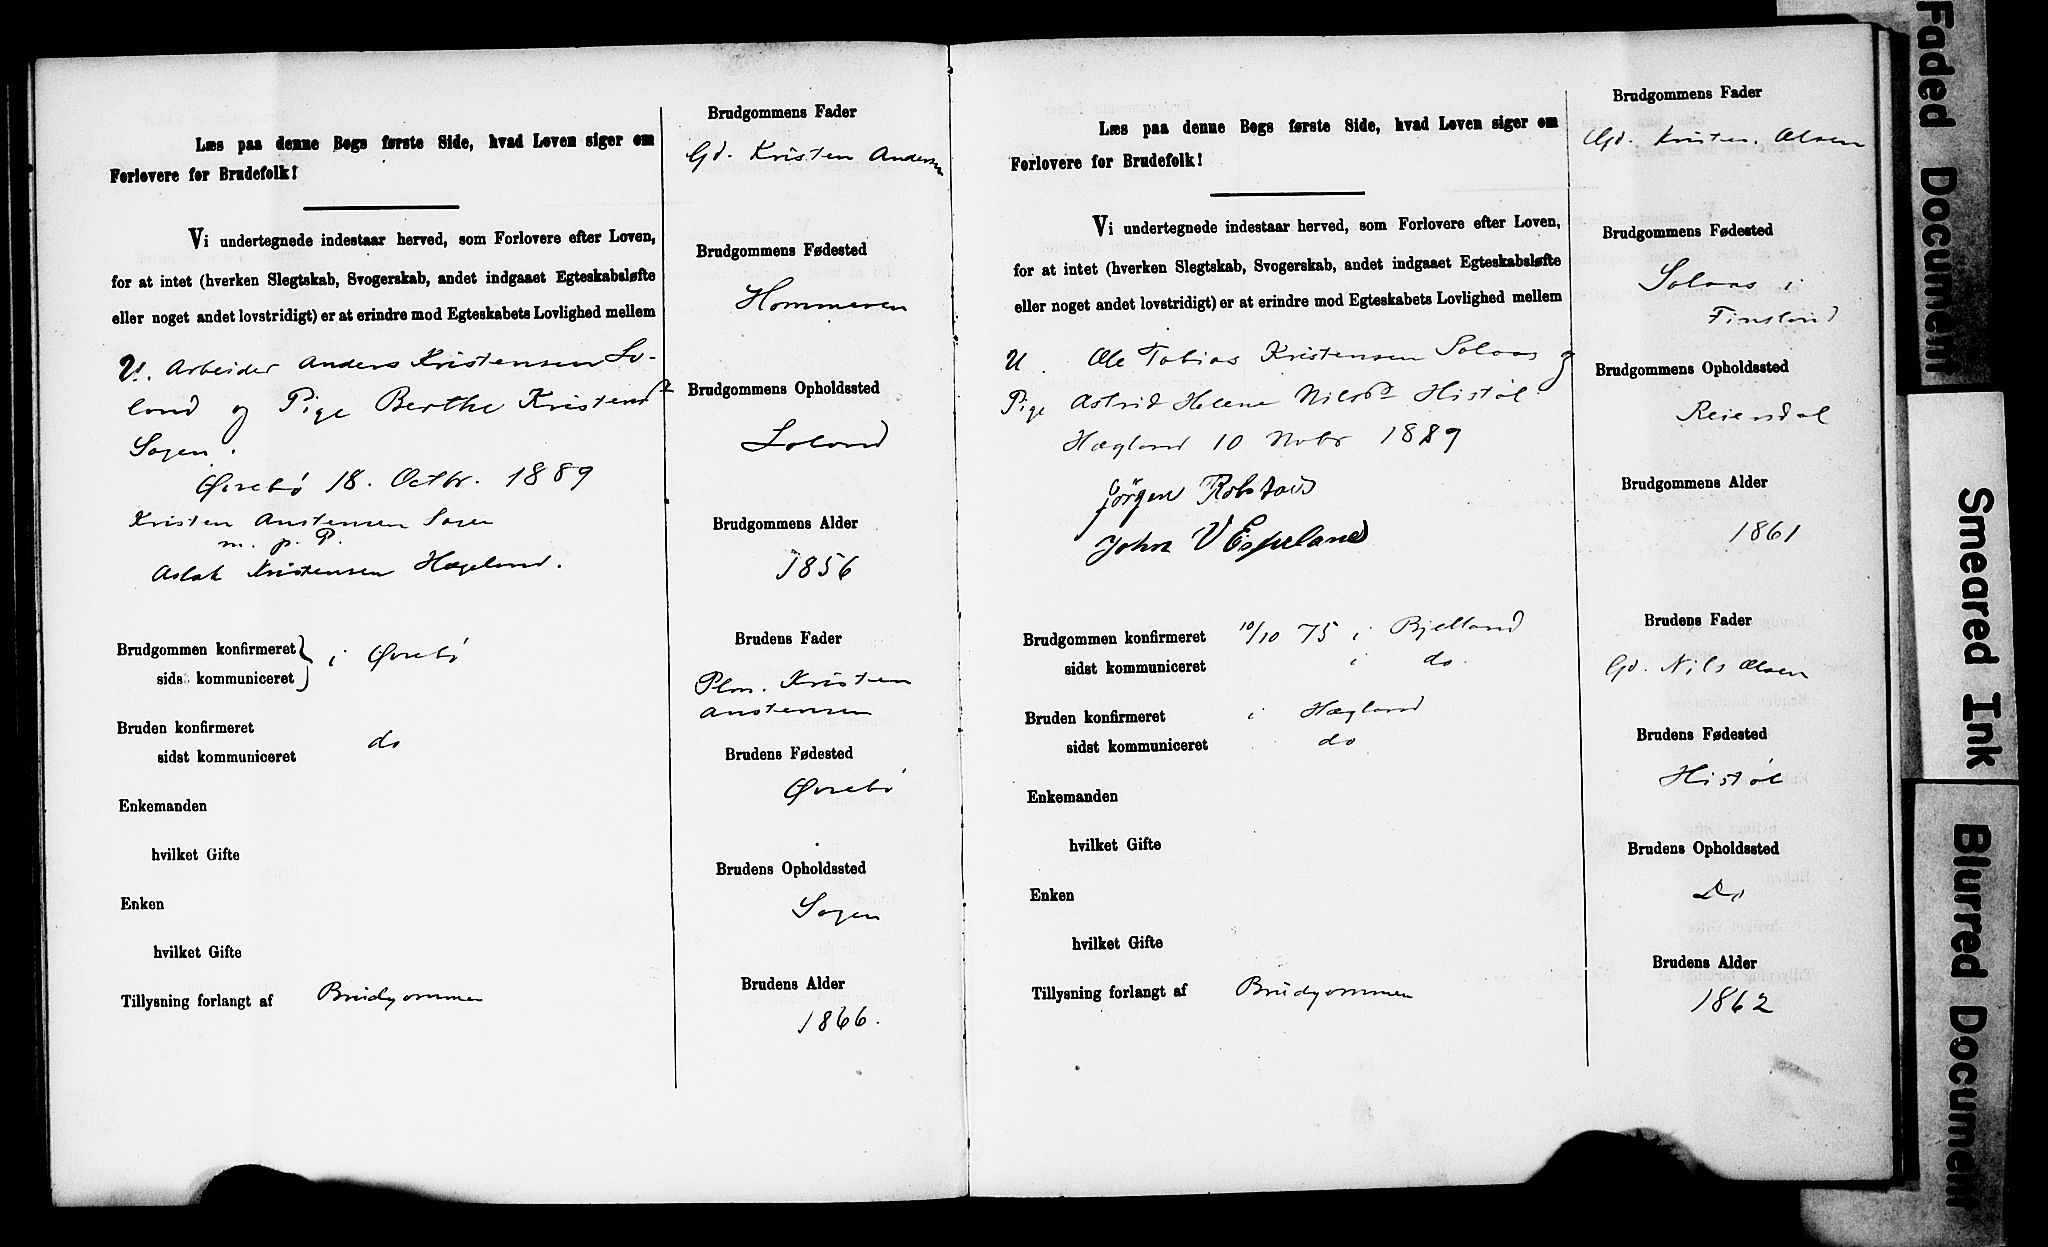 Læs paa denne Bogs første Side, hvad Loven siger om
Forlovere for Brudefolk!
Vi undertegnede indestaar herved, som Forlovere efter Loven,
for at intet (hverken Slegtskab, Svogerskab, andet indgaaet Egteskabsløfte
eller noget andet lovstridigt) er at erindre mod Egteskabets Lovlighed mellem
U. Arbeider Anders Kristensen Lo-
land og Pige Berthe Kristensd
Sagen.
Øvrebø 18. Octbr. 1889
Kristen Anstensen Sagen
m. p. P.
Aslak Kristensen Hægeland.
Brudgommen konfirmeret
sidst kommuniceret } i Øvrebø
Bruden konfirmeret
sidst kommuniceret do
Enkemanden
hvilket Gifte
Enken
hvilket Gifte
Tillysning forlangt af Brudgommen
Brudgommens Fader
Gd. Kristen Andersen
Brudgommens Fødested
Hommeren
Brudgommens Opholdssted
Loland
Brudgommens Alder
1856
Brudens Fader
Plm. Kristen
Anstensen
Brudens Fødested
Øvrebø
Brudens Opholdssted
Sagen
Brudens Alder
1866.
Læs paa denne Bogs første Side, hvad Loven siger om
Forlovere for Brudefolk!
Vi undertegnede indestaar herved, som Forlovere efter Loven,
for at intet (hverken Slegtskab, Svogerskab, andet indgaaet Egteskabsløfte
eller noget andet lovstridigt) er at erindre mod Egteskabets Lovlighed mellem
U. Ole Tobias Kristensen Solaas og
Pige Astrid Helene Nilsd Histøl
Hægland 10 Nobr 1889
Jörgen Robstad
John V Espeland
Brudgommen konfirmeret 10/10 75 i Bjelland
sidst kommuniceret i do.
Bruden konfirmeret i Hægland
sidst kommuniceret do
Enkemanden
hvilket Gifte
Enken
hvilket Gifte
Tillysning forlangt af Brudgommen
Brudgommens Fader
Gd. Kristen Olsen
Brudgommens Fødested
Solaas i
Finsland
Brudgommens Opholdssted
Reiersdal
Brudgommens Alder
1861
Brudens Fader
Gd. Nils Olsen
Brudens Fødested
Histøl
Brudens Opholdssted
Do
Brudens Alder
1862
Faded Document
Smeared Ink
Blurred Document